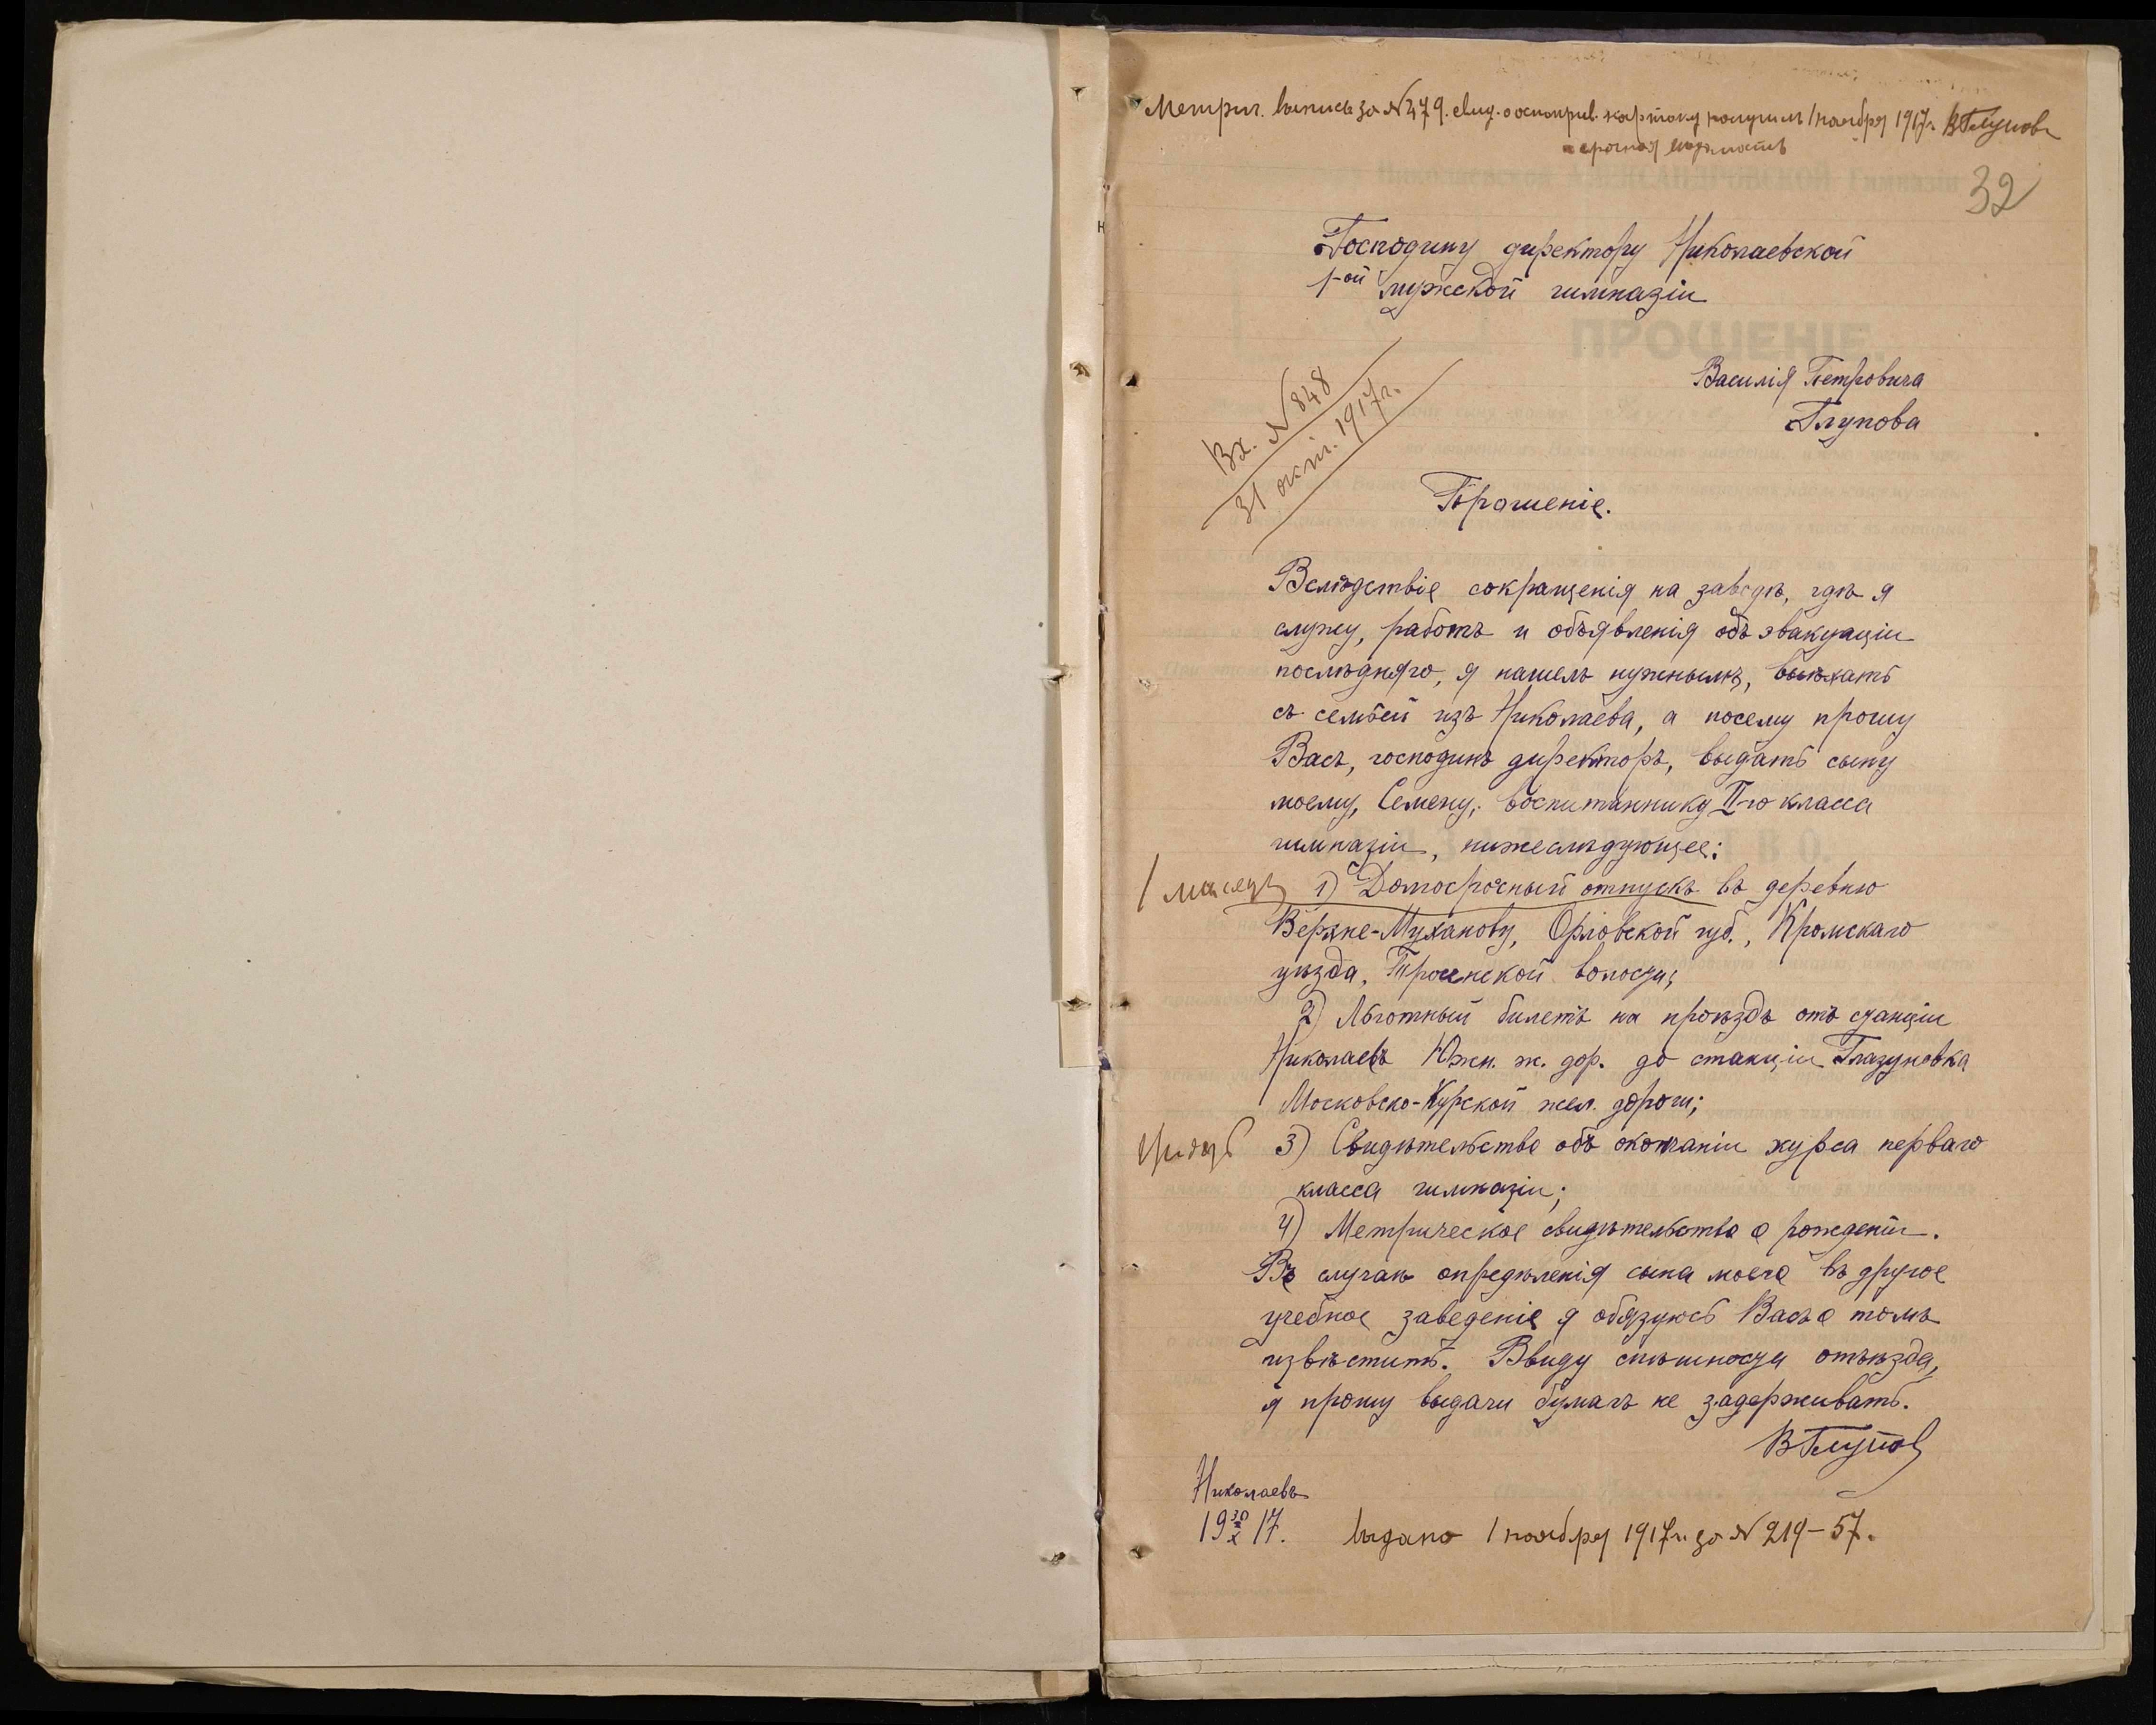 Метрич. выпись за № 479. свид. о оспоприв. карточку получилъ 1 ноября 1917 г. ВГлуповъ
срочная вѣдомость
32
Господину директору Николаевской
1-ой мужской гимназіи
Василія Петровича
Глупова
Вх. № 848
31 окт. 1917 г.
Прошеніе.
Вслѣдствіе сокращенія на заводѣ, гдѣ я
служу, работъ и объявленія объ эвакуаціи
послѣдняго, я нашелъ нужнымъ, выѣхать
съ семьей изъ Николаева, а посему прошу
Васъ, господинъ директоръ, выдать сыну
моему, Семену, воспитаннику II-го класса
гимназіи, нижеслѣдующее:
1 мѣсяцъ 1) Долгосрочный отпускъ въ деревню
Верхне-Муханову, Орловской губ., Кромскаго
уѣзда, Троснской волости;
2) Льготный билетъ на проѣздъ отъ станціи
Николаевъ Южн. ж. дор. до станціи Глазуновка
Московско-Курской жел. дороги;
3) Свидѣтельство объ окончаніи курса перваго
класса гимназіи;
4) Метрическое свидѣтельство о рожденіи.
Въ случаѣ опредѣленія сына моего въ другое
учебное заведеніе я обязуюсь Васъ о томъ
извѣстить. Ввиду спѣшности отъѣзда,
я прошу выдачи бумагъ не задерживать.
ВГлупов
Николаевъ
19 30/X 17.
Выдано 1 ноября 1917 г. за № 219-57.